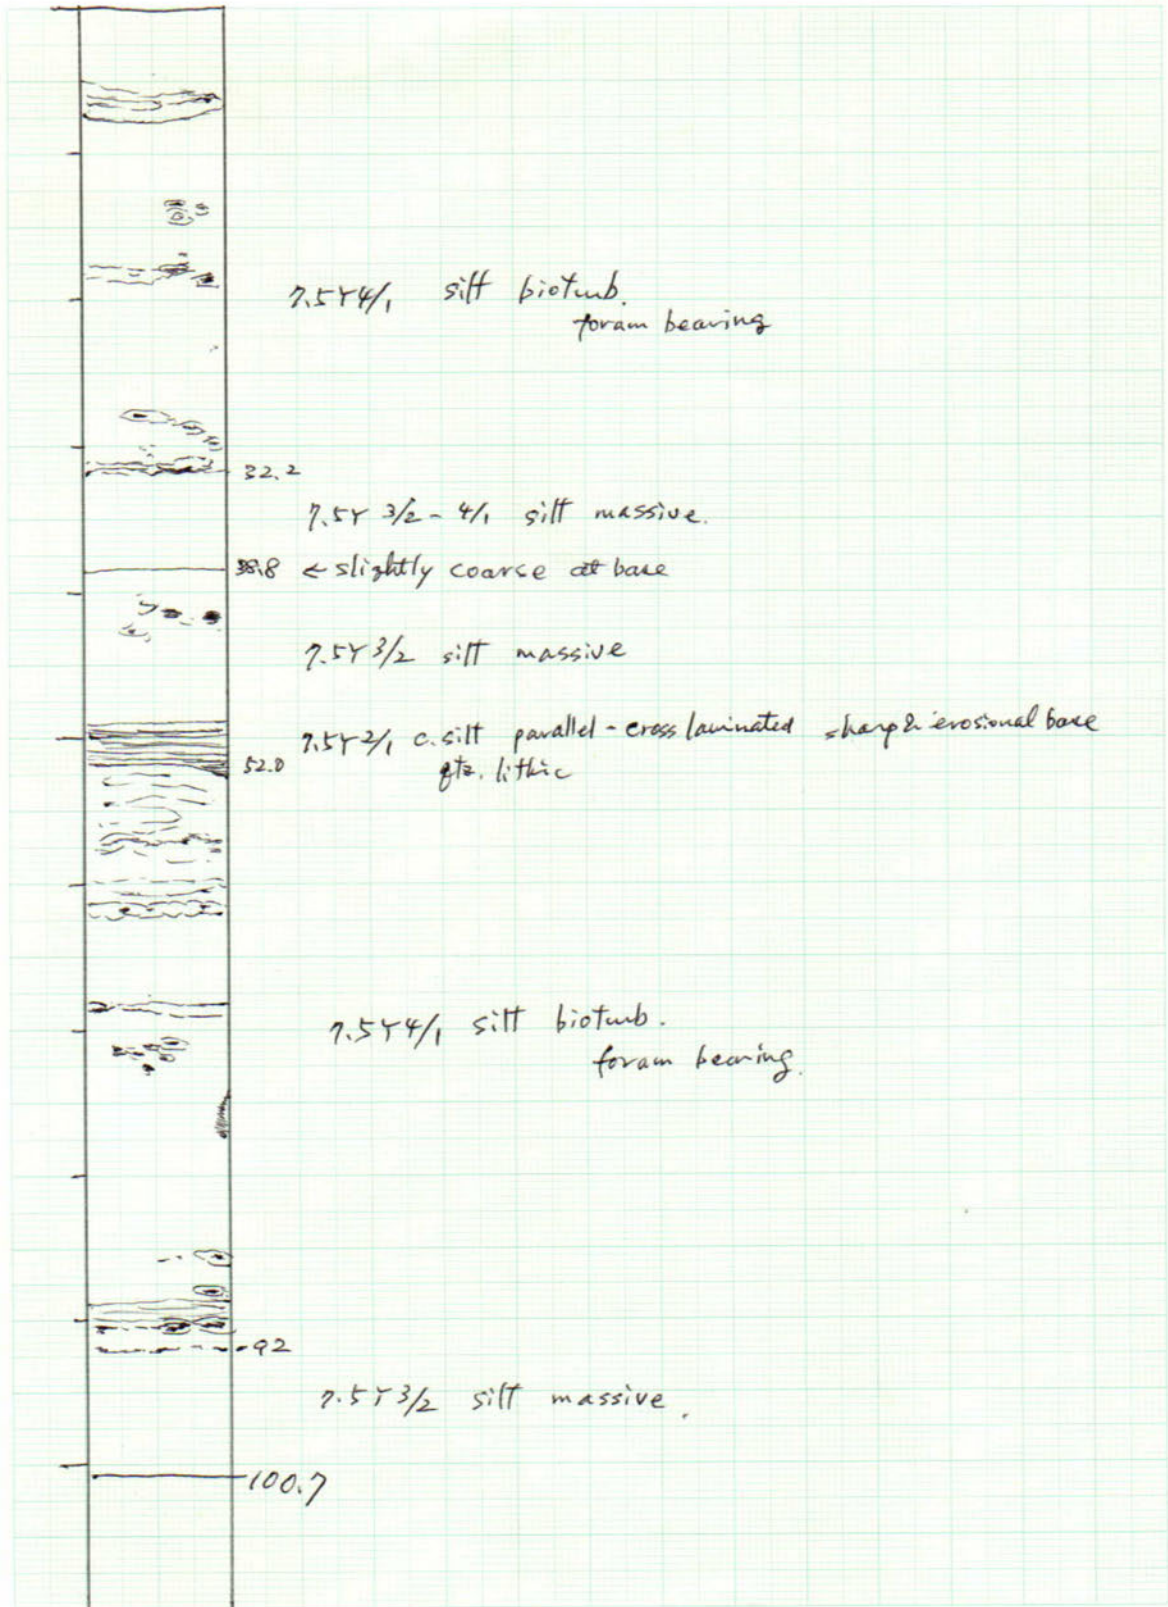 7.5Y4/1 silt bioturb.
foram bearing
32.2
7.5Y 3/2 - 4/1 silt massive.
38.8 ← slightly coarse at base
7.5Y 3/2 silt massive
7.5Y 2/1 c. silt parallel - cross laminated sharp & erosional base
52.0 qtz. lithic
7.5Y4/1 silt bioturb.
foram bearing.
92
7.5Y 3/2 silt massive.
100.7